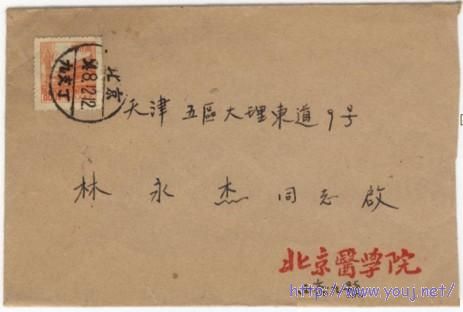 北京
天津五區大理東道9号
林永杰同志啟
北京醫學院
http://www.youj.net/